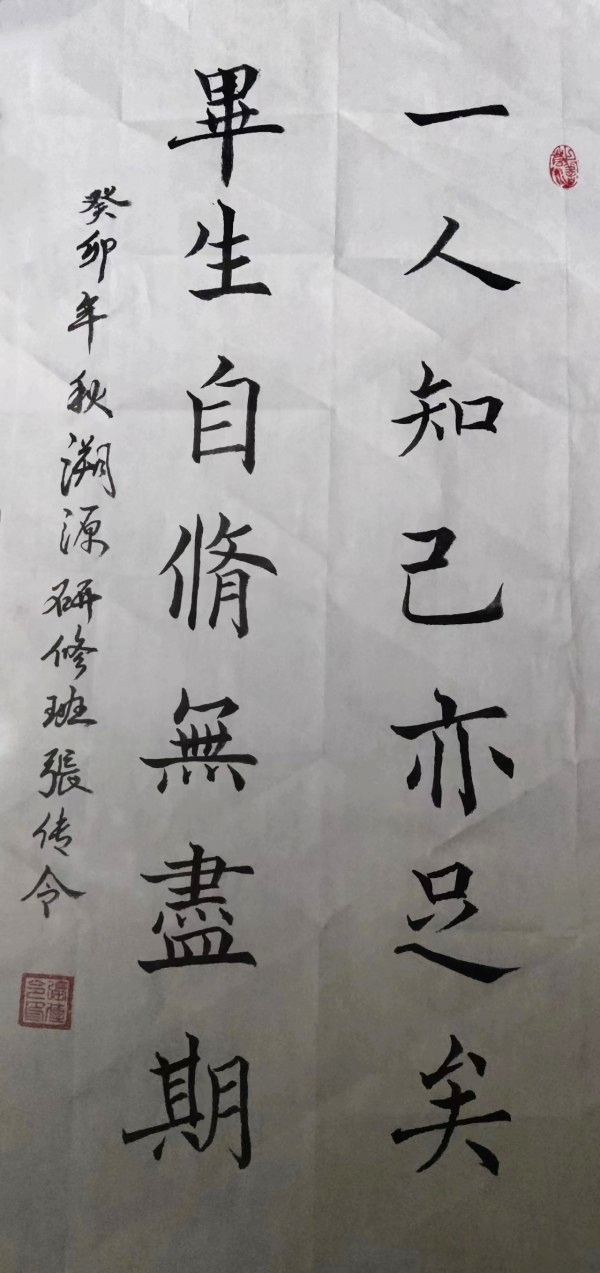 一人知己亦足矣
畢生自脩無盡期
癸卯年秋溯源研修班張传令